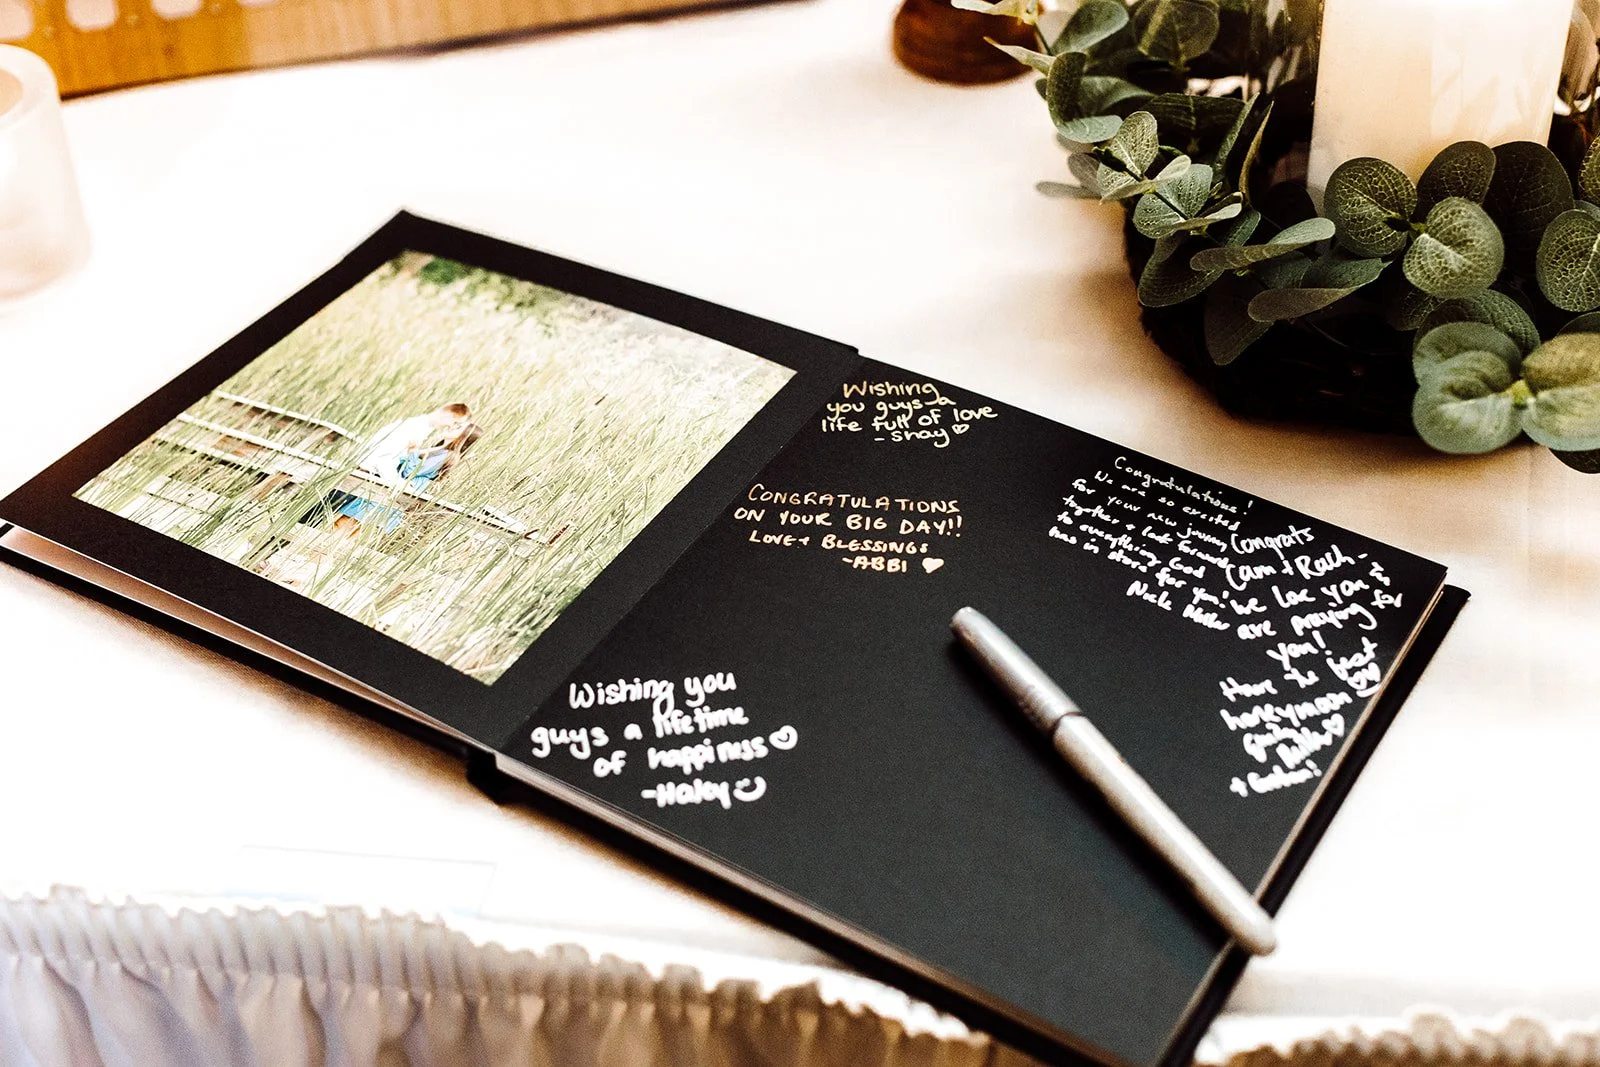 Wishing
you guys a
life full of love
- Shay ♡
CONGRATULATIONS
ON YOUR BIG DAY!!
LOVE + BLESSINGS
-ABBI ♥
Wishing you
guys a lifetime
of happiness ♡
-Haley
Congratulations!
We are so excited
for your new journey
together + look forward
to everything God
has in store for you!
Congrats
Cam + Rach -
we love you &
are praying
you!
Have the best
honeymoon